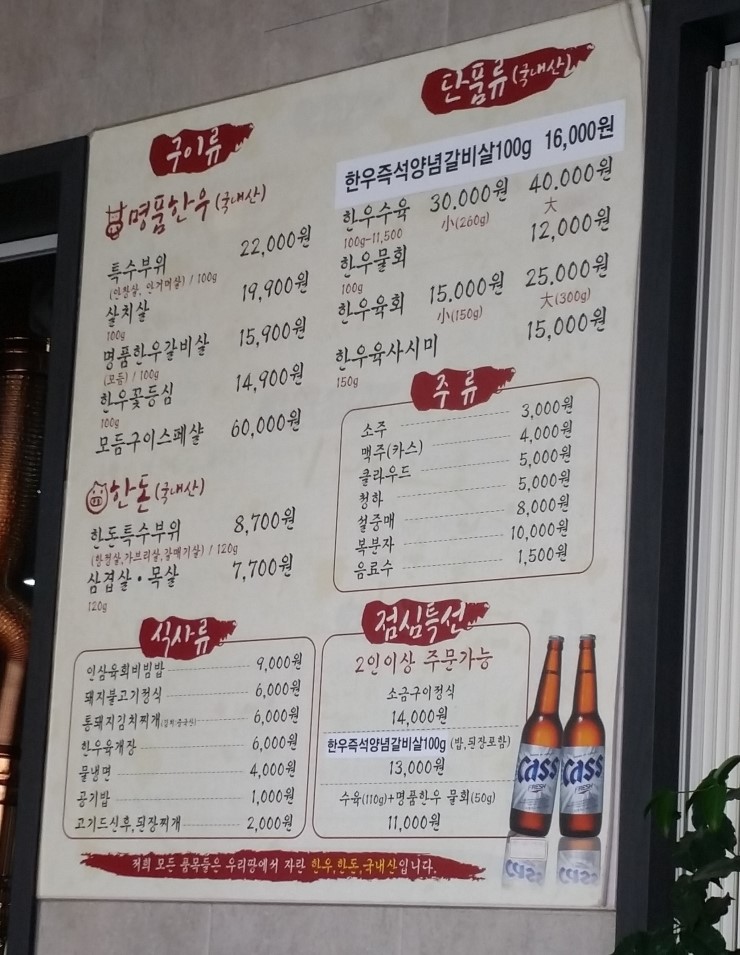 구이류
명품한우(국내산)
특수부위 22,000원
(안창살, 안거미살) / 100g
살치살 19,900원
100g
명품한우갈비살 15,900원
(모듬) / 100g
한우꽃등심 14,900원
100g
모듬구이스페샬 60,000원
한돈(국내산)
한돈특수부위 8,700원
(항정살,가브리살,갈매기살) / 120g
삼겹살·목살 7,700원
120g
식사류
인삼육회비빔밥 9,000원
돼지불고기정식 6,000원
통돼지김치찌개(김치:중국산) 6,000원
한우육개장 6,000원
물냉면 4,000원
공기밥 1,000원
고기드신후,된장찌개 2,000원
단품류(국내산)
한우즉석양념갈비살100g 16,000원
한우수육 30.000원 40.000원
100g-11,500 小(260g) 大
한우물회 12,000원
100g
한우육회 15,000원 25.000원
小(150g) 大(300g)
한우육사시미 15,000원
150g
주류
소주 3,000원
맥주(카스) 4,000원
클라우드 5,000원
청하 5,000원
설중매 8,000원
복분자 10,000원
음료수 1,500원
점심특선
2인이상 주문가능
소금구이정식
14,000원
한우즉석양념갈비살100g (밥,된장포함)
13,000원
수육(110g)+명품한우 물회(50g)
11,000원
Cass
FRESH
Cass
FRESH
저희 모든 품목들은 우리땅에서 자란 한우,한돈,국내산입니다.